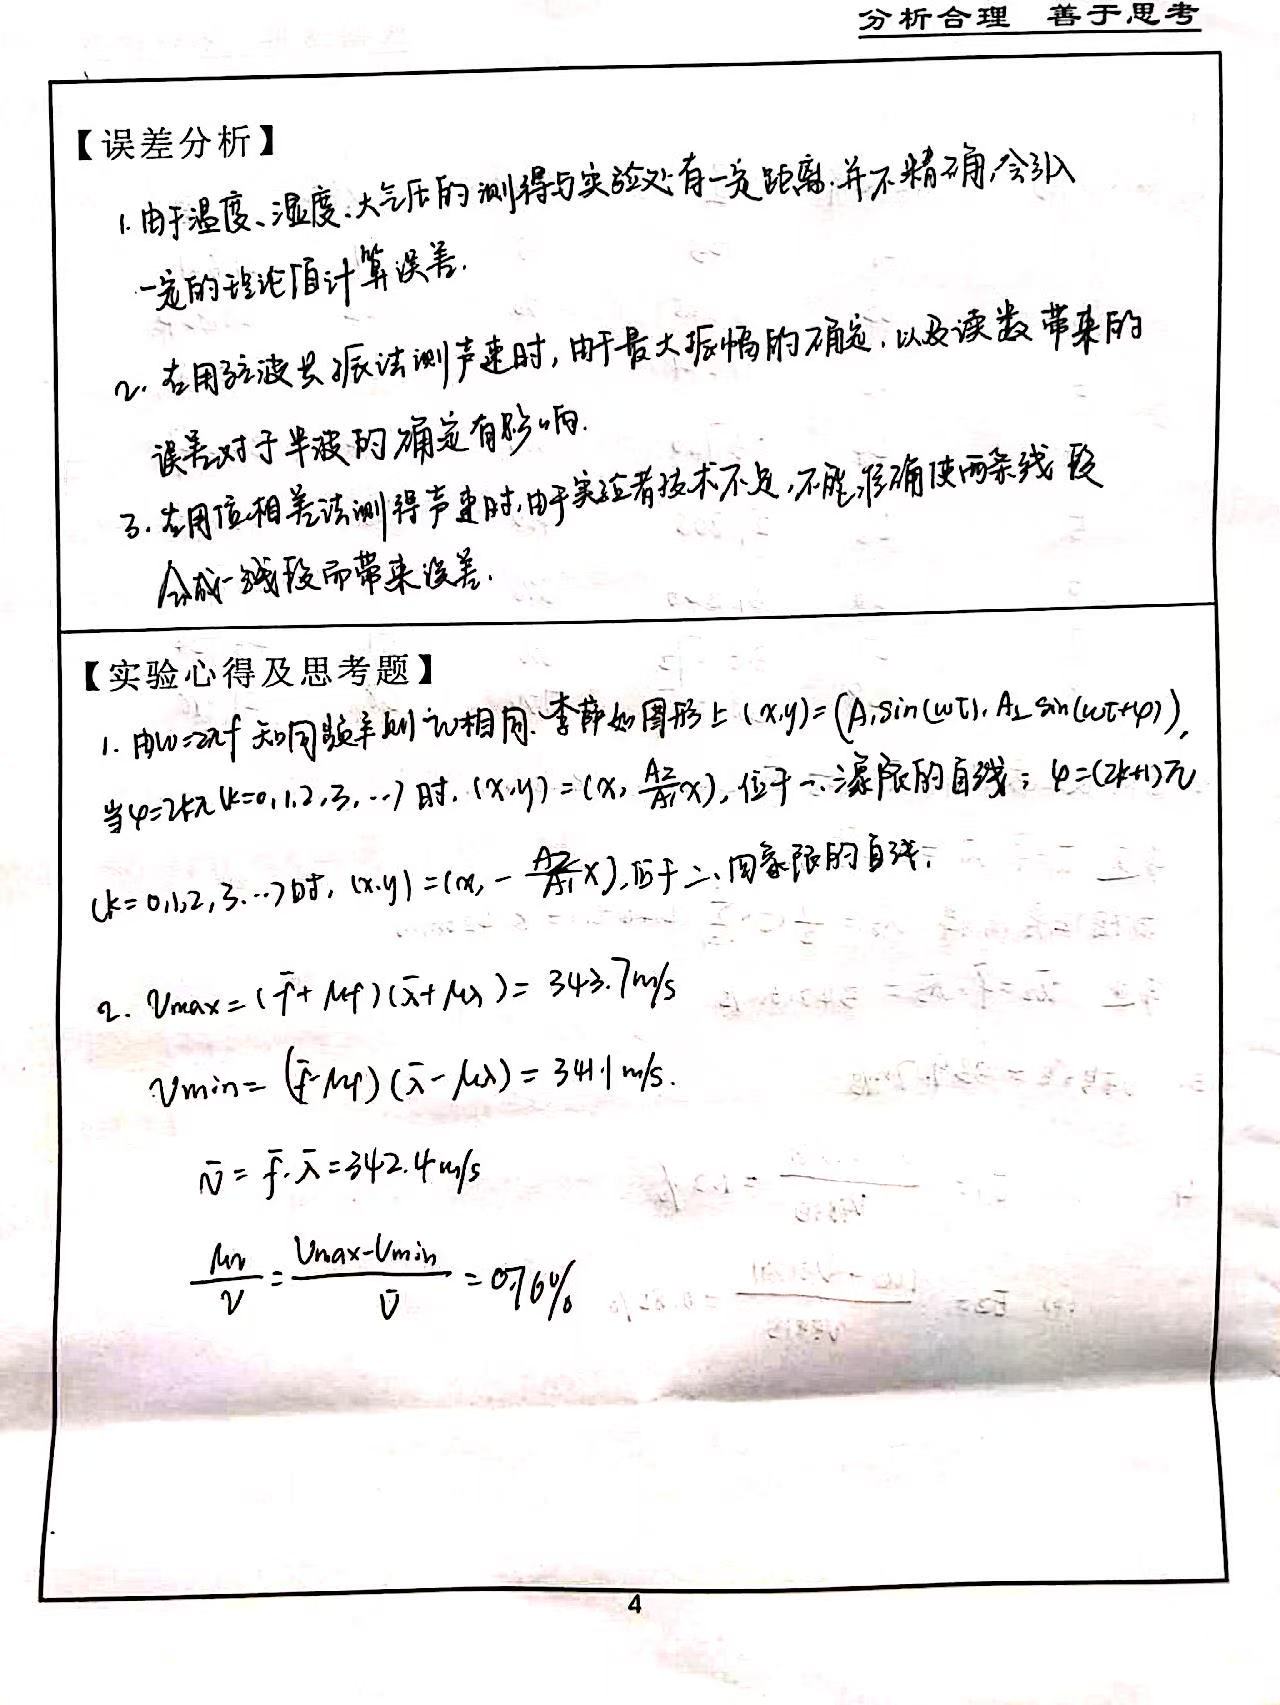 分析合理 善于思考
【误差分析】
1. 由于温度、湿度、大气压的测得与实验处有一定距离.并不精确,会引入
一定的理论值计算误差.
2. 在用驻波共振法测声速时,由于最大振幅的确定,以及读数带来的
误差对于半波的确定有影响.
3. 在用位相差法测得声速时,由于实验者技术不足,不能准确使两条线段
合成一线段而带来误差.
【实验心得及思考题】
1. 由ω=2πf 知同频率则ω相同.李萨如图形上(x,y)=(A₁sin(ωt),A₂sin(ωt+φ)),
当φ=2kπ(k=0,1,2,3,…)时,(x,y)=(x,A₂/A₁x),位于一、三象限的直线;φ=(2k+1)π
(k=0,1,2,3…)时,(x,y)=(x,-A₂/A₁x),位于二、四象限的直线;
2. Vmax=(f̄+μf)(λ̄+μλ)=343.7m/s
Vmin=(f̄-μf)(λ̄-μλ)=341.1m/s.
v̄=f̄·λ̄=342.4m/s
μv/v=(Vmax-Vmin)/v̄=0.76%
4